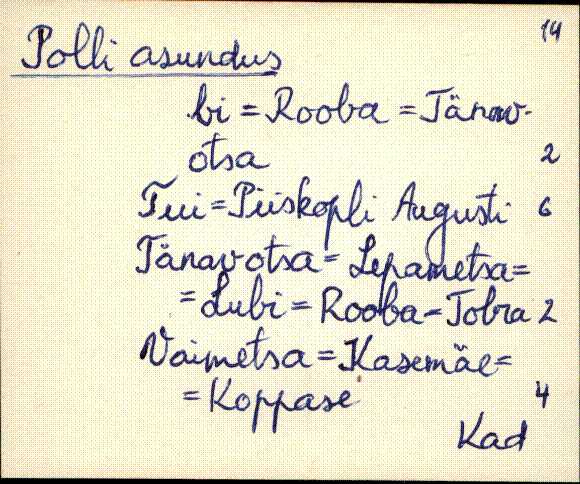 14
Polli asundus
bi = Rooba = Tänav-
otsa 2
Tui = Piiskopli Augusti 6
Tänavotsa = Lepametsa =
= Lubi = Rooba = Tobra 2
Vaimetsa = Kasemäe =
= Koppase 4
Kad